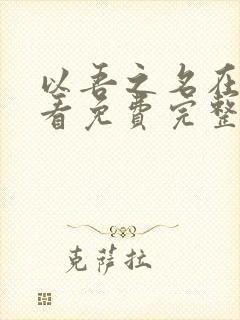 以吾之名在
看免费完整
克萨拉